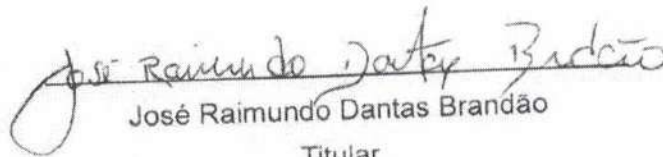 José Raimundo Dantas Brandão
José Raimundo Dantas Brandão
Titular